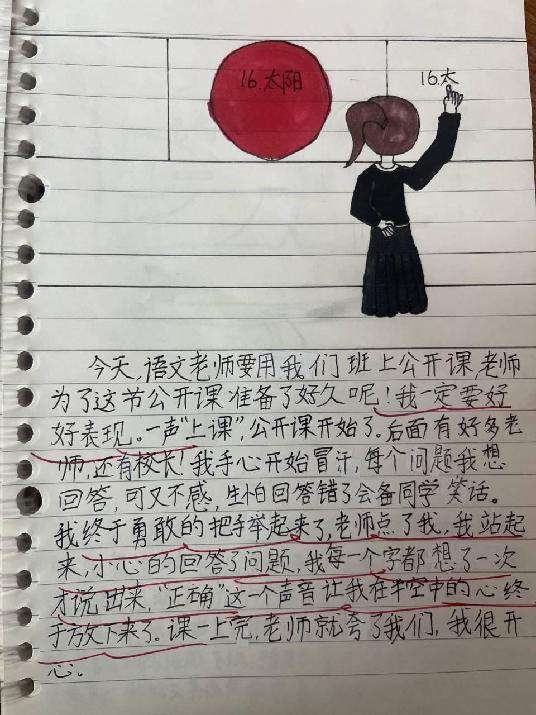 16.太阳
16.太
今天,语文老师要用我们班上公开课,老师
为了这节公开课准备了好久呢!我一定要好
好表现。一声“上课”,公开课开始了。后面有好多老
师,还有校长!我手心开始冒汗,每个问题我想
回答,可又不感,生怕回答错了会备同学笑话。
我终于勇敢的把手举起来了,老师点了我,我站起
来,小心的回答了问题,我每一个字都想了一次
才说出来,“正确”这一个声音让我在半空中的心终
于放下来了。课一上完,老师就夸了我们,我很开
心。